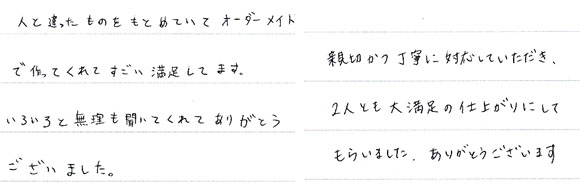 人と違ったものをもとめていて オーダーメイト
で作ってくれてすごい満足してます。
いろいろと無理も聞いてくれてありがとう
ございました。
親切かつ丁寧に対応していただき、
2人とも大満足の仕上がりにして
もらいました。ありがとうございます